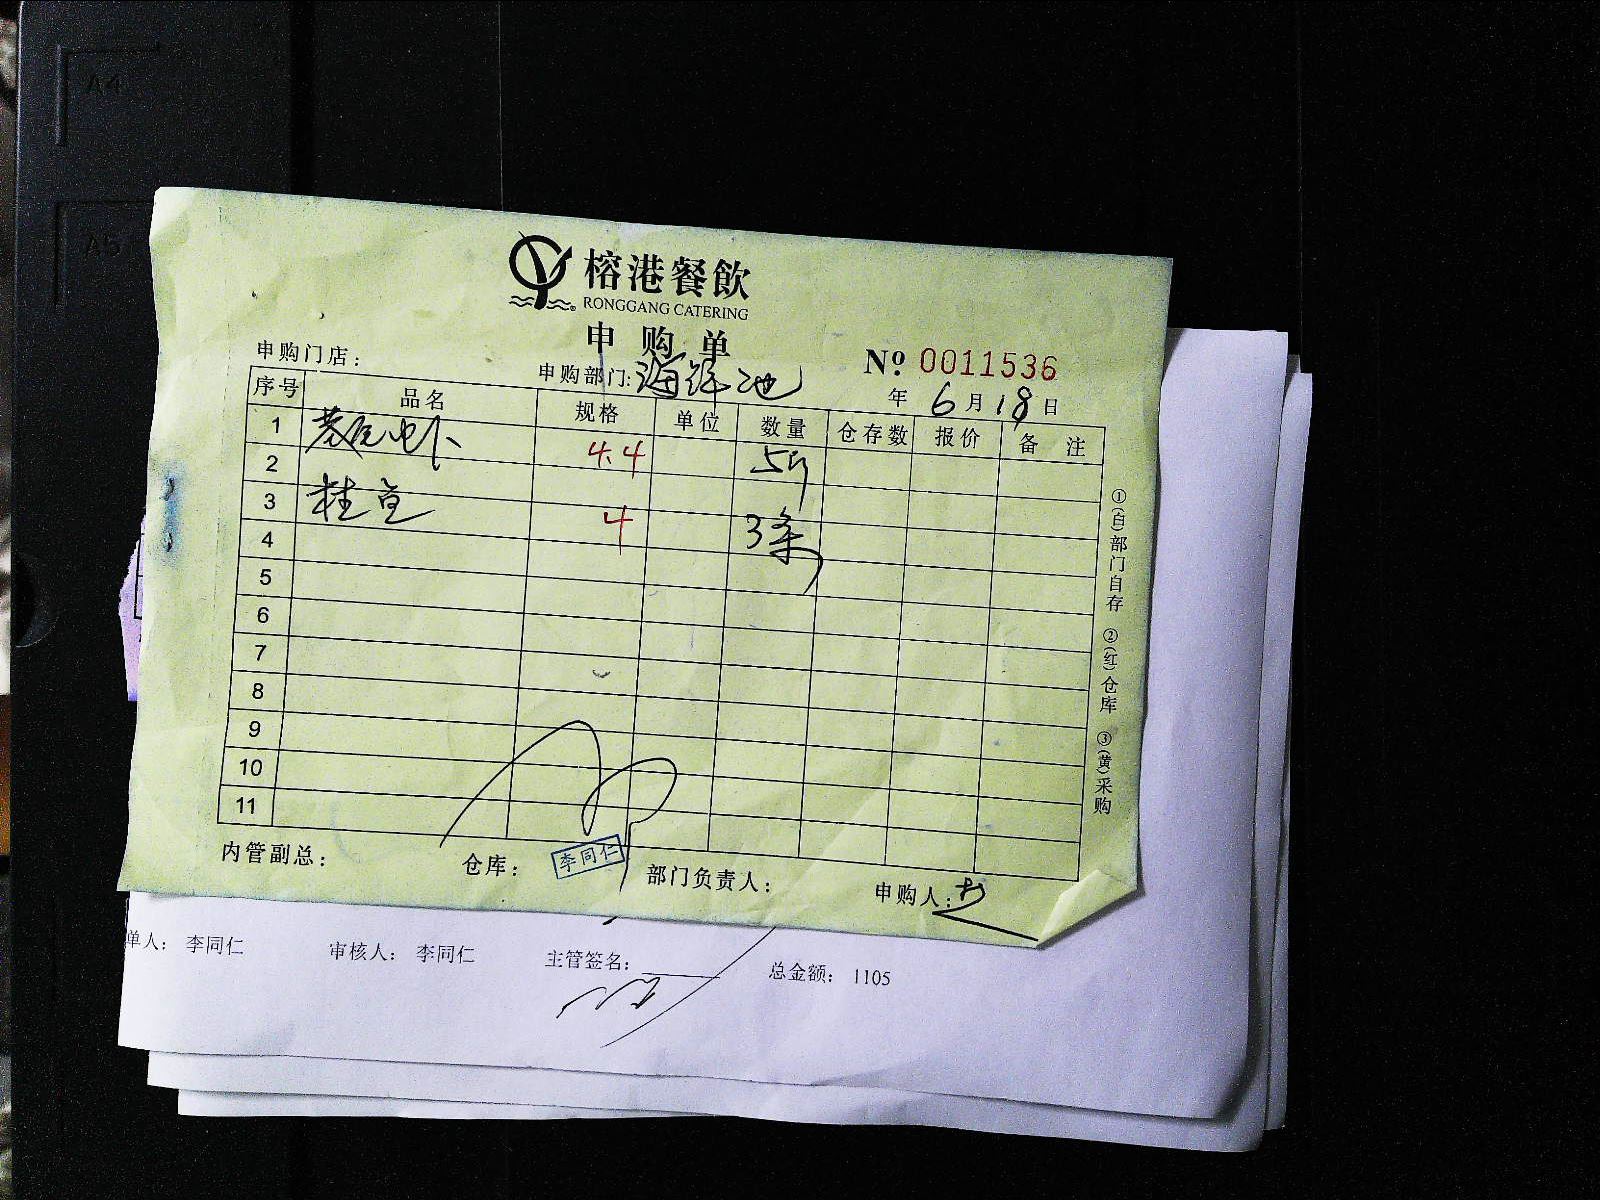 A4
A5
榕港餐飲
RONGGANG CATERING
申购单
申购门店：
申购部门：海鲜池
№ 0011536
年 6 月 18 日
序号 品名 规格 单位 数量 仓存数 报价 备注
1 4.4 5斤
2
3 桂鱼 4 3条
4
5
6
7
8
9
10
11
①(白)部门自存 ②(红)仓库 ③(黄)采购
内管副总： 仓库： 李同仁 部门负责人： 申购人：
单人： 李同仁 审核人： 李同仁 主管签名： 总金额： 1105